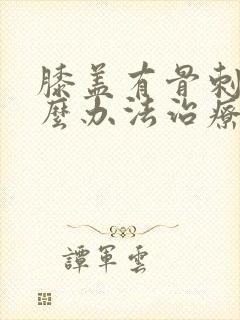 膝盖有骨刺
麼办法治療
譚軍雲